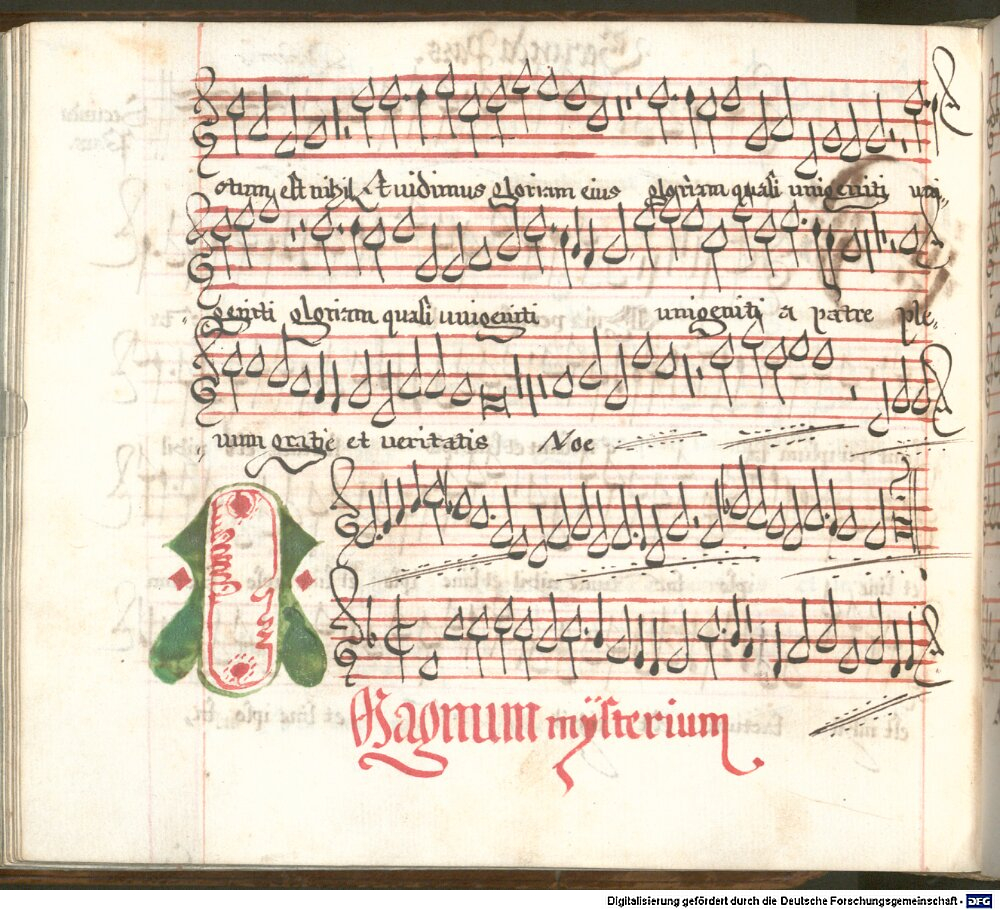 otum est nihil Et uidimus gloriam eius gloriam quasi unigeniti uni„
„geniti gloriam quasi unigeniti unigeniti a patre ple„
„num gratie et ueritatis Noe
Magnum mÿsterium
Digitalisierung gefördert durch die Deutsche Forschungsgemeinschaft - DFG